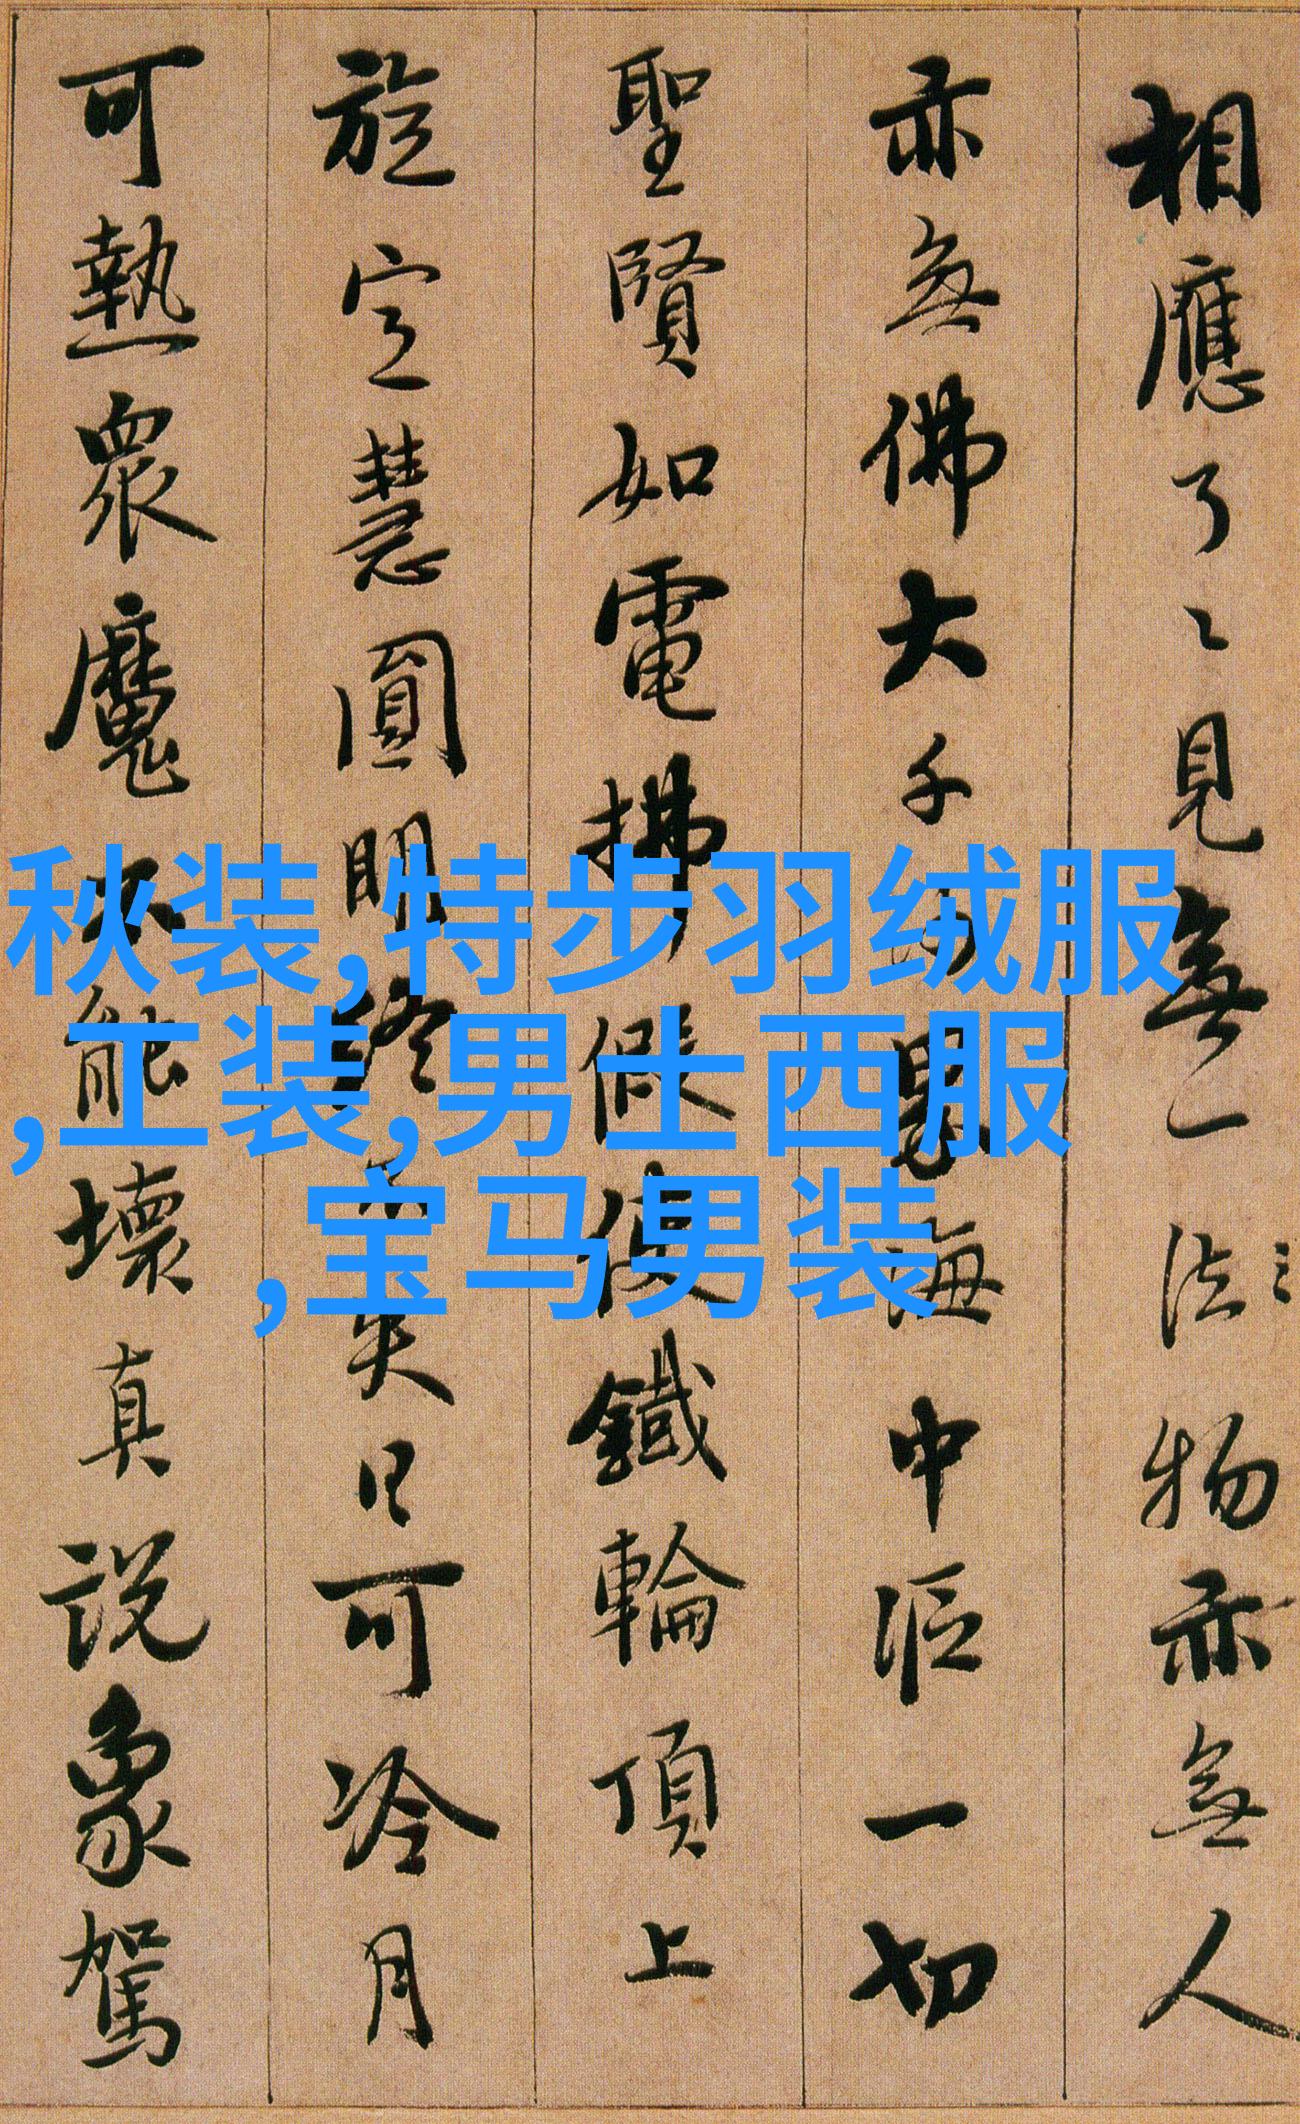 相應了〻見無一法物亦無人
亦無佛大千沙界海中漚一切
聖賢如電拂假使鐵輪頂上
旋定慧圓明終不失日可冷月
可熱眾魔不能壞真說象駕
秋装,特步羽绒服
,工装,男士西服
,宝马男装